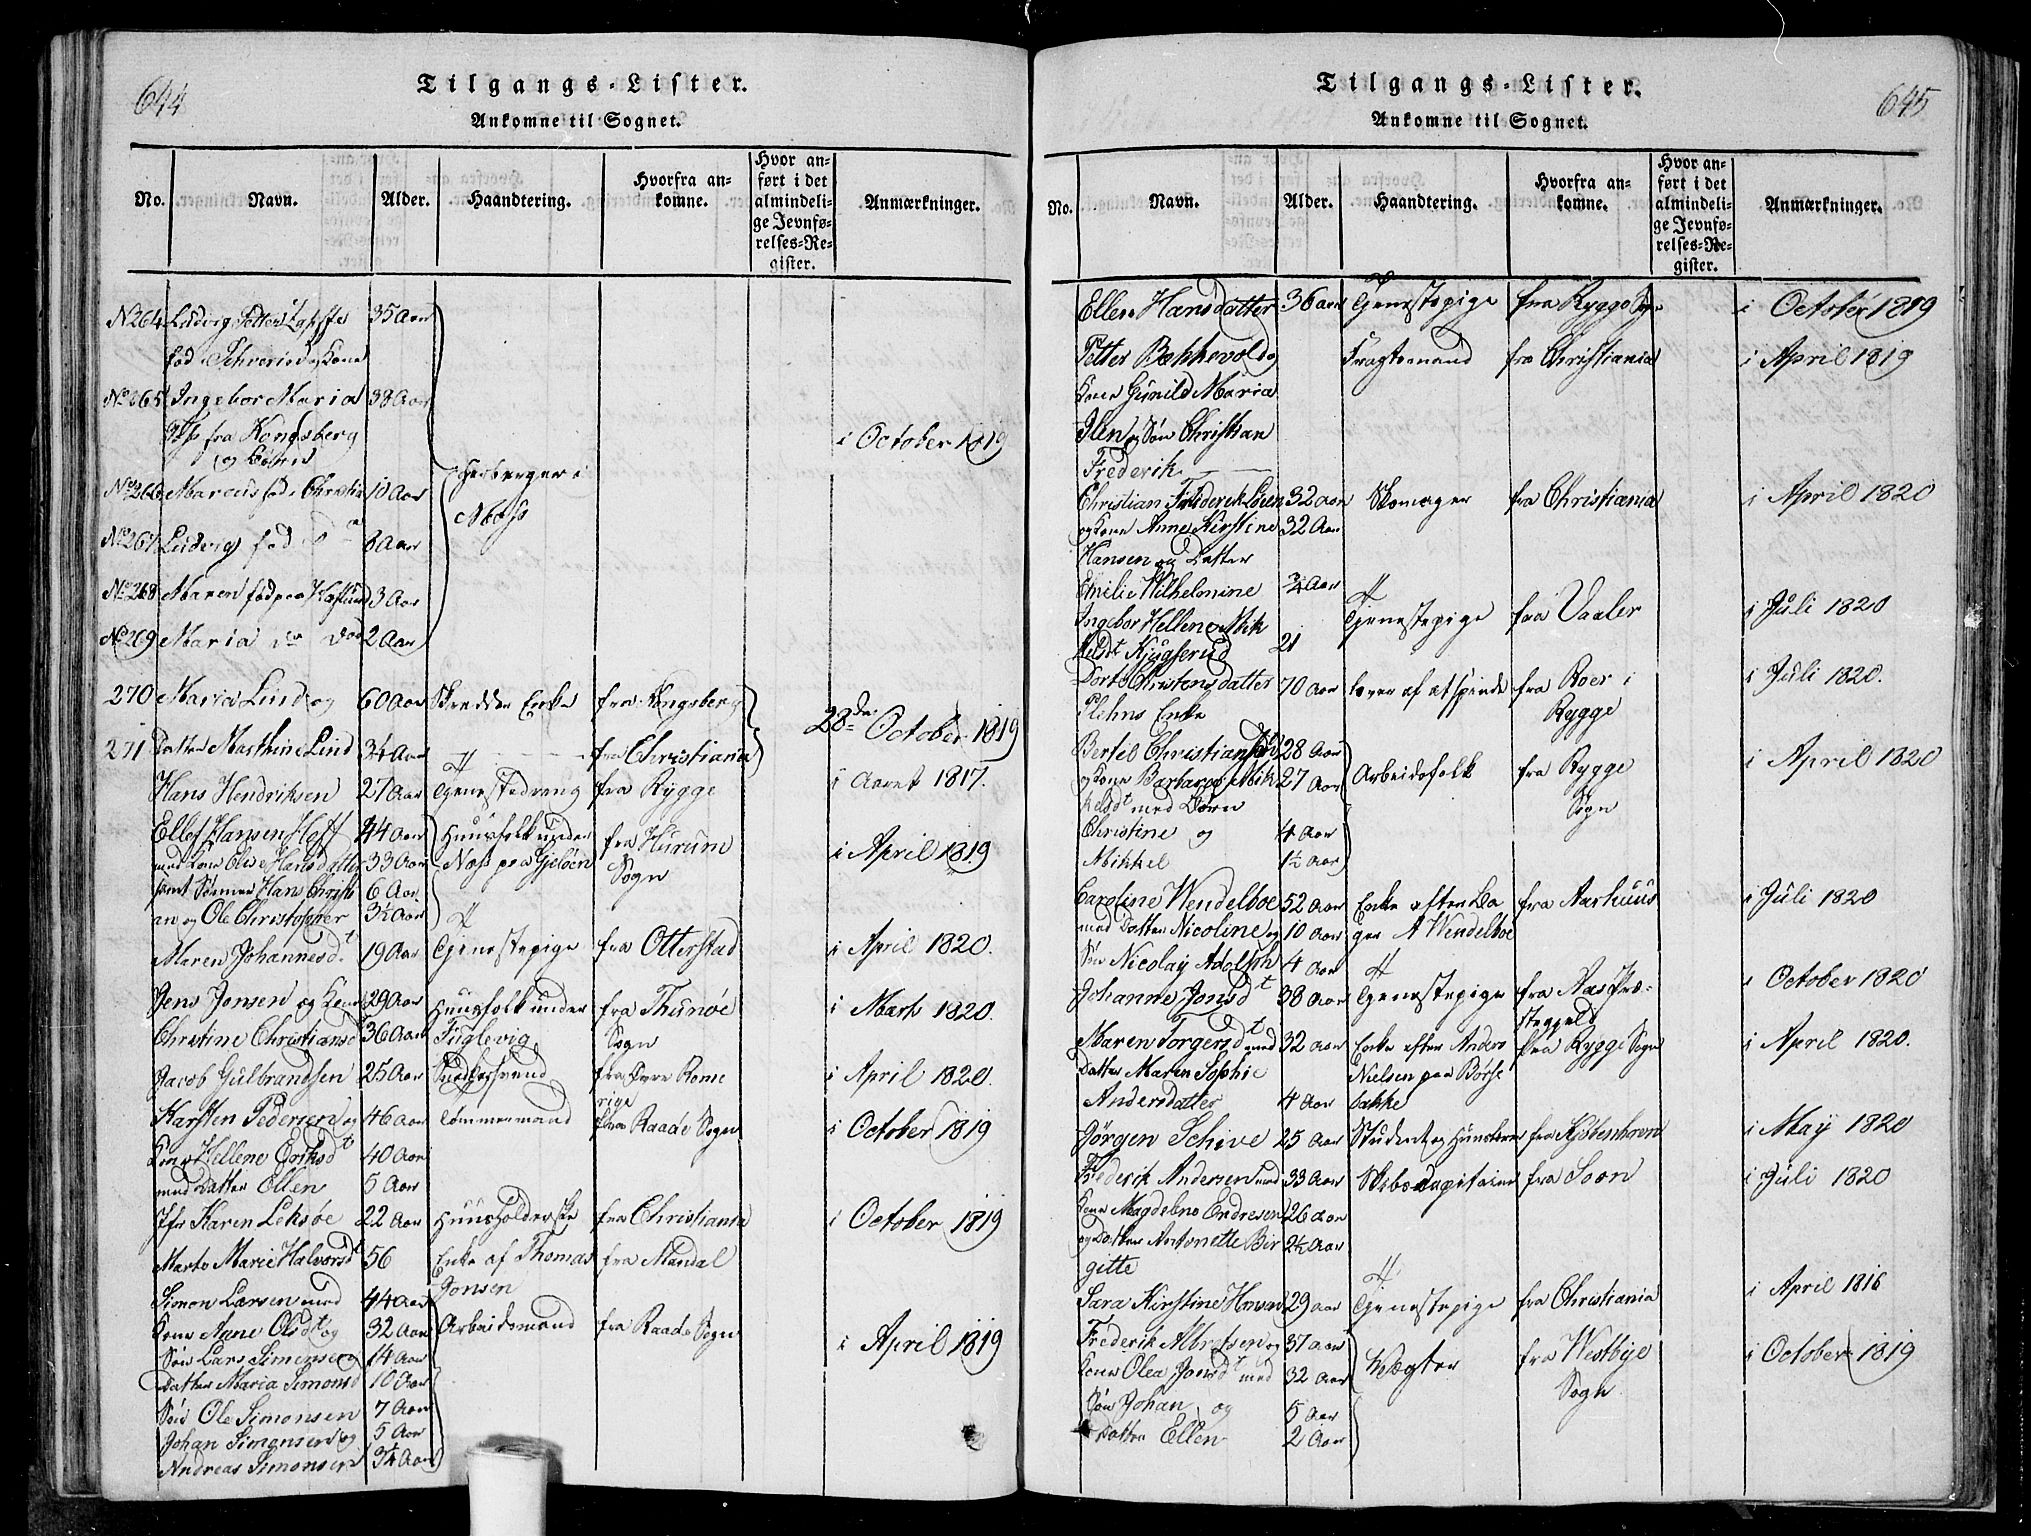 644
Tilgangs-Lister.
Ankomne til Sognet.
No. Navn. Alder. Haandtering. Hvorfra ankomne. Hvor anført i det almindelige Jevnførelses-Register. Anmærkninger.
No 264 Ludvig Petter 35 Aar
fød i Schverin og Kone
No 265 Ingebor Maria 38 Aar
fra Kongsberg i October 1819
og Børn
No 266 Marcus fød i Christia 10 Aar Herberger i
Moss
No 267 Ludvig fød do 8 Aar
No 268 Maren fød paa 3 Aar
No 269 Maria do do 2 Aar
270 Maria Lind og 60 Aar Skredder Enke fra Kongsberg
28de October 1819
271 Datter Mathine Lind 34 Aar fra Christiania
Hans Hendriksen 27 Aar Tjenestedreng fra Rygge i Aaret 1817.
Ellef Hansen Hoff 44 Aar Huusfolk under fra Hurum i April 1819
med Kone Olia Hansdatter 33 Aar Næs paa Gjeløen Sogn
samt Sønner Hans Christi 6 Aar
an og Ole Christopher 3½ Aar
Maren Johannesdt. 19 Aar Tjenestepige fra Otterstad i April 1820.
Jens Jensen og Kone 29 Aar Huusfolk under fra Thunøe i Mart 1820.
Christine Christiansdt 36 Aar Fuglevig Sogn
Jacob Gulbrandsen 25 Aar Snedkersvend fra Øvre Rome i April 1820.
rige
Karsten Pedersen og 46 Aar Tømmermand fra Raade Sogn i October 1819
Kone Hellene Eriksdt 40 Aar
med Datter Ellen 5 Aar
Jfr Karen Leksøe 22 Aar Huusholderske fra Christiania i October 1819
Marte Marie Halvorsdt 56 Enke af Thomas fra Mandal
Jonsen
Simon Larsen med 44 Aar
Kone Anne Olsdt og 32 Aar Arbeidsmand fra Raade Sogn i April 1819
Søn Lars Simensen 14 Aar
Datter Maria Simonsd 10 Aar
Søn Ole Simonsen 7 Aar
Johan Simonsen og 5 Aar
Andreas Simonsen ¾ Aar
645
Tilgangs-Lister.
Ankomne til Sognet.
No. Navn. Alder. Haandtering. Hvorfra ankomne. Hvor anført i det almindelige Jevnførelses-Register. Anmærkninger.
Ellen Hansdatter 36 aar Tjenestepige fra Rygge Sogn i October 1819
Petter Bækkevold og Fragtemand fra Christiania i April 1819
Kone Gunild Maria
Ilen og Søn Christian
Frederik
Christian Frederik Loen 32 aar Skomager fra Christiania i April 1820
og Kone Anne Kirstine 32 Aar
Hansen og Datter
Emilie Wilhelmine ¾ Aar
Ingebor Hellene Mik Tjenestepige fra Vaaler i Juli 1820
kelsdt Kjugserud 21
Dorte Christensdatter 70 aar lever af at spinde fra Roer i i Juli 1820.
Plehns Enke Rygge
Bertel Christiansen 28 aar
og Kone Barbara Mik 27 Aar Arbeidsfolk fra Rygge i April 1820
kelsdt med Børn Sogn
Christine og 4 Aar
Mikkel 1½ Aar
Caroline Wendelboe 52 Aar Enke efter Ba fra Aarhuus i Juli 1820
med Datter Nicoline og 10 aar ger A Wendelboe
Søn Nicolay Adolph 4 aar
Johanne Jonsdt 38 aar Tjenestepige fra Aas Præ- i October 1820
stegjeld
Maren Torgersdt med 32 aar Enke efter Anders fra Rygge Sogn i April 1820.
Datter Maren Sophie Nielsen paa Børse
Andersdatter 4 Aar bakke
Jørgen Schive 25 aar Student og Huuslærer fra Kjøbenhavn i May 1820
Frederik Andersen med 33 Aar Skibs Capitaine fra Soon i Juli 1820
Kone Magdelene Endresen 26 aar
og Datter Antonette Bir 2½ Aar
gitte
Sara Kirstine Hansen 29 aar Tjenestepige fra Christiania i April 1816
Frederik Albretsen og 37 aar
Kone Olea Jonsdt med 32 Aar Vægter fra Westbye i October 1819
Søn Johan og 5 Aar Sogn
Datter Ellen 2 Aar